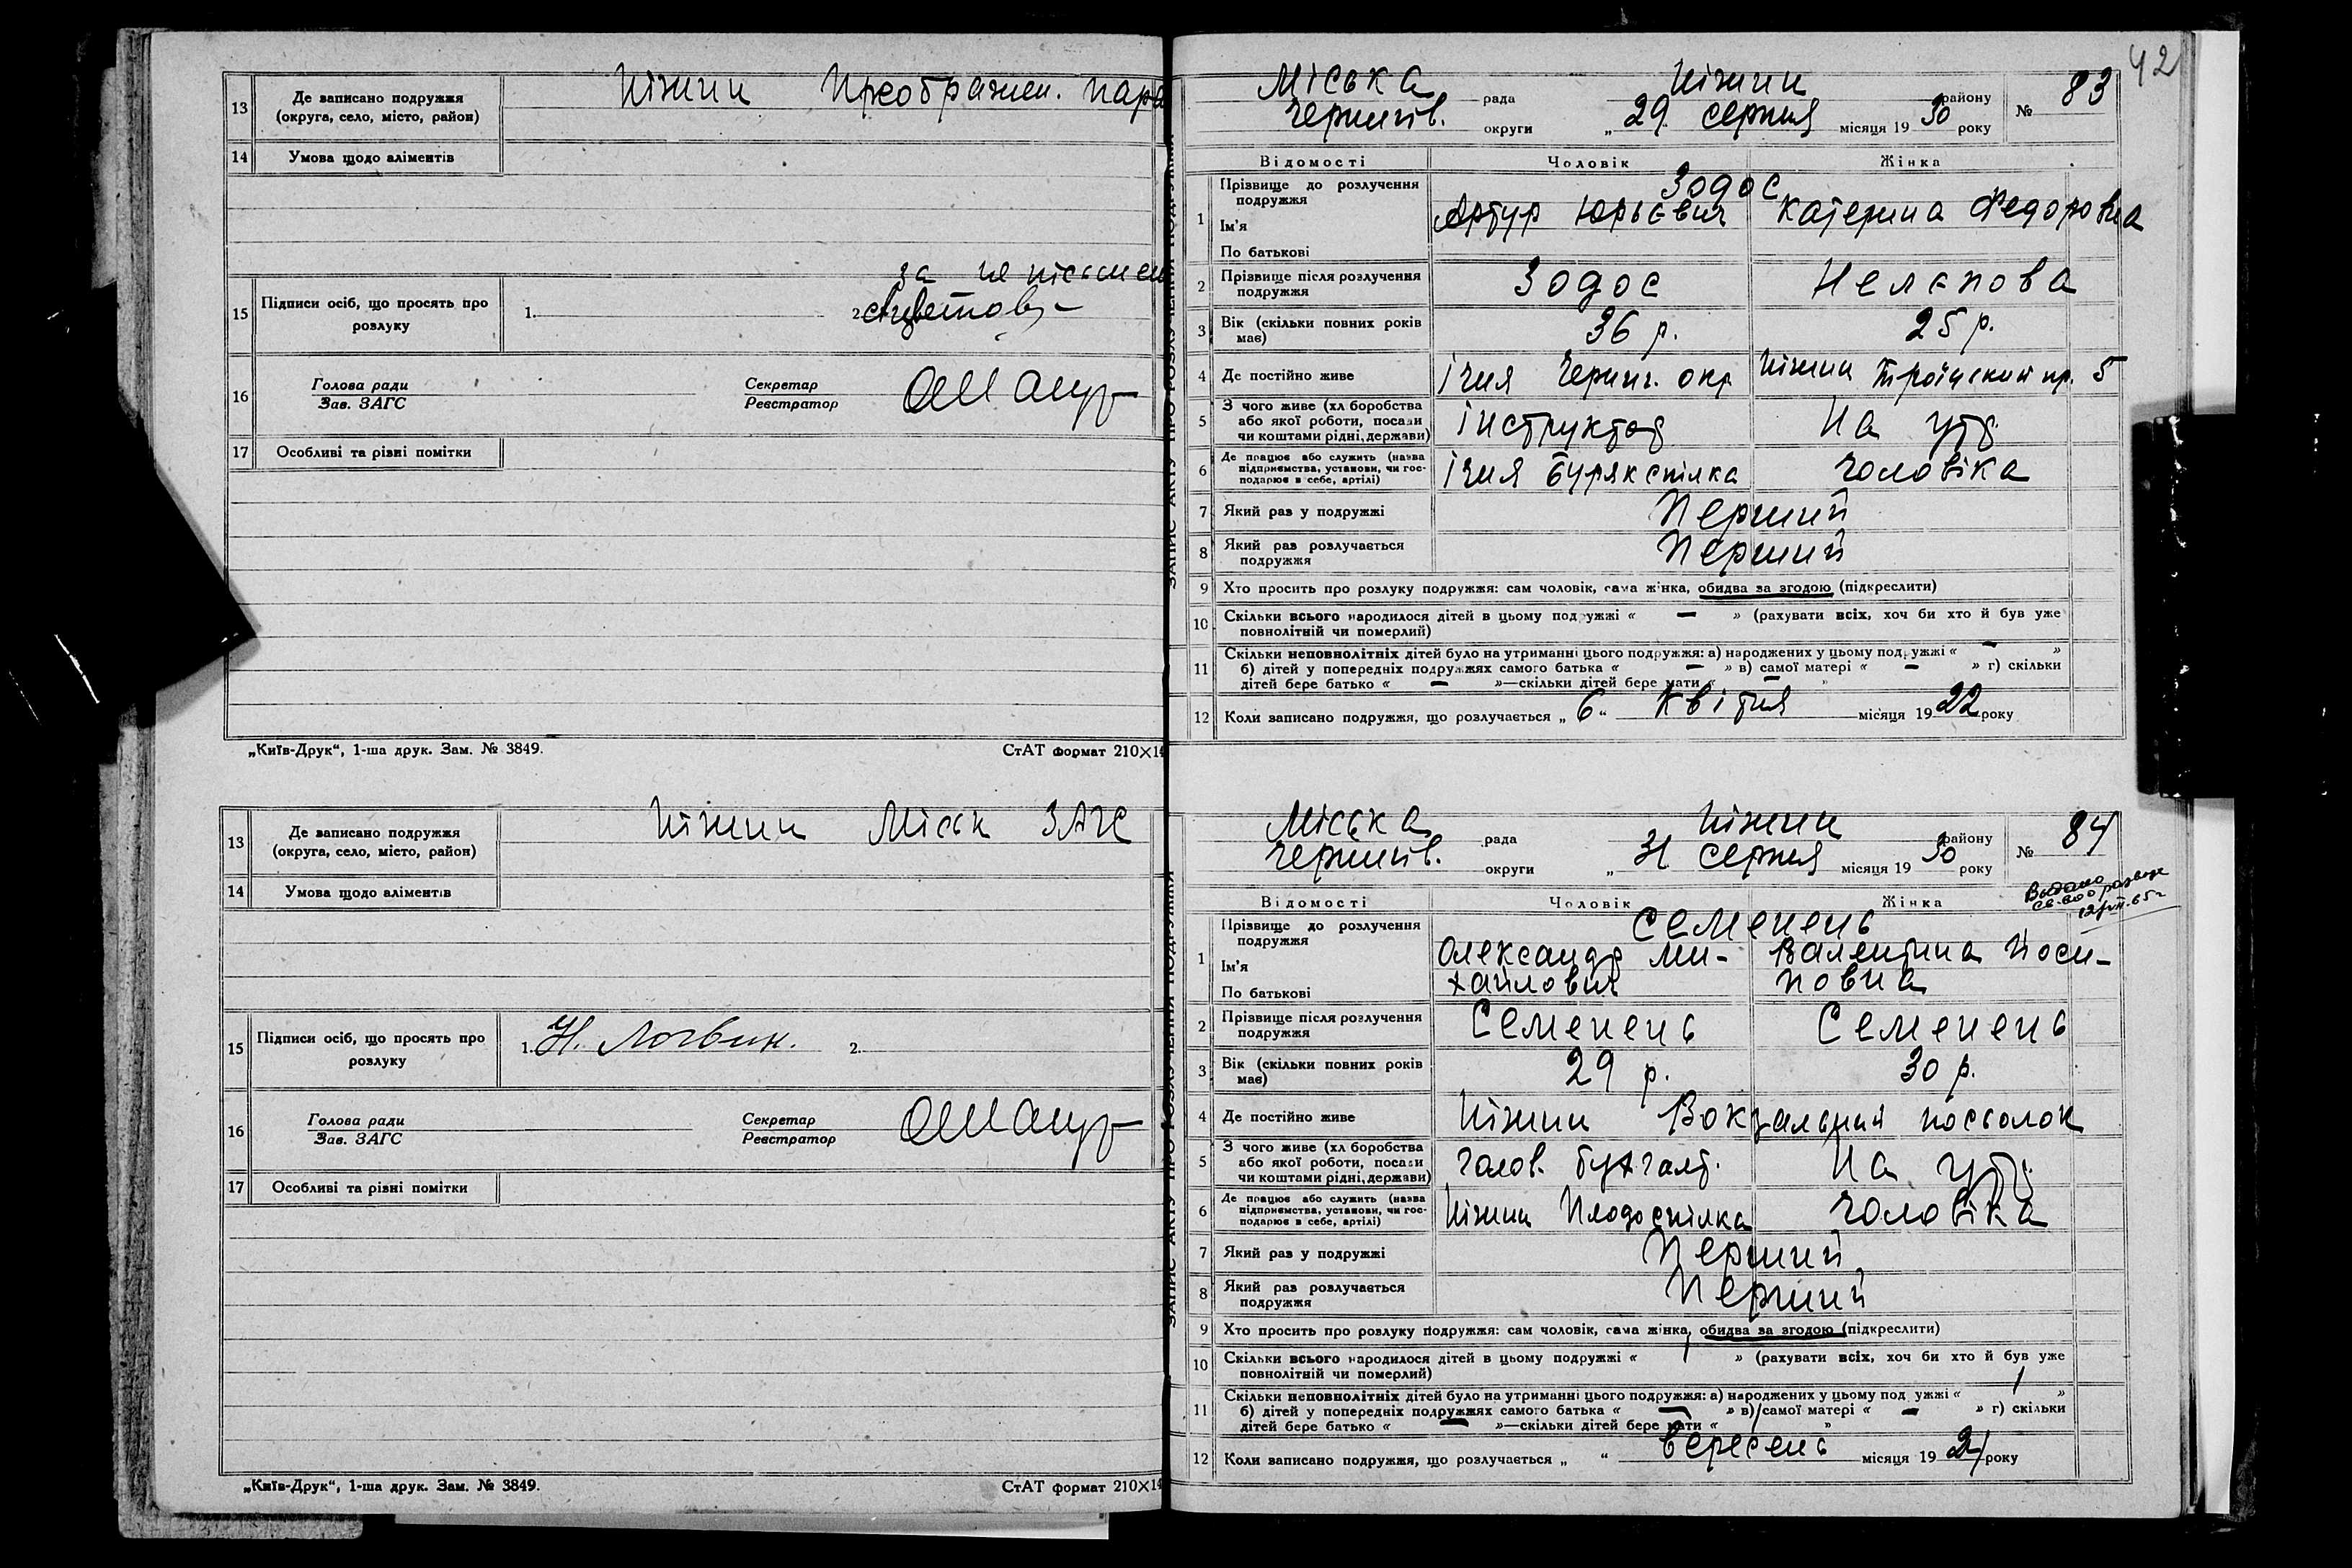 13 Де записано подружжя
(округа, село, місто, район)
Ніжин Преображен. пара
14 Умова щодо аліментів
за не письмен
15 Підписи осіб, що просять про
розлуку
1. 2.
16 Голова ради
Зав. ЗАГС
Секретар
Реєстратор
17 Особливі та різні помітки
„Київ-Друк“, 1-ша друк. Зам. № 3849. СтАТ формат 210×14
13 Де записано подружжя
(округа, село, місто, район)
Ніжин Міськ ЗАГС
14 Умова щодо аліментів
15 Підписи осіб, що просять про
розлуку
1. Н. Логвин. 2.
16 Голова ради
Зав. ЗАГС
Секретар
Реєстратор
17 Особливі та різні помітки
„Київ-Друк“, 1-ша друк. Зам. № 3849. СтАТ формат 210×14
42
Міська рада Ніжин району № 83
Чернигів. округи „29 серпня місяця 1930 року
Відомості Чоловік Жінка
1 Прізвище до розлучення
подружжя
Зодос
Ім'я
Артур Юрьєвич Катерина Федоровна
По батькові
2 Прізвище після розлучення
подружжя
Зодос Нелєпова
3 Вік (скільки повних років
має)
36 р. 25 р.
4 Де постійно живе Ічня Черниг. окр. Ніжин Троїцский пр. 5
5 З чого живе (хл боробства
або якої роботи, посади
чи коштами рідні, держави)
інструктор На утр.
6 Де працює або служить (назва
підприємства, установи, чи гос-
подарює в себе, артілі)
Ічня Бурякспілка чоловіка
7 Який раз у подружжі Перший
8 Який раз розлучається
подружжя
Перший
9 Хто просить про розлуку подружжя: сам чоловік, сама жінка, обидва за згодою (підкреслити)
10 Скільки всього народилося дітей в цьому подружжі « — » (рахувати всіх, хоч би хто й був уже
повнолітній чи померлий)
11 Скільки неповнолітніх дітей було на утриманні цього подружжя: а) народжених у цьому подружжі « — »
б) дітей у попередніх подружжях самого батька « — » в) самої матері « — » г) скільки
дітей бере батько « — »—скільки дітей бере мати « — »
12 Коли записано подружжя, що розлучається „6“ Квітня місяця 1922 року
Міська рада Ніжин району № 84
Чернигів. округи „31 серпня місяця 1930 року
Видано
св-во о разводе
12/VII.65 г
Відомості Чоловік Жінка
1 Прізвище до розлучення
подружжя
Семенень
Ім'я
Олександр Ми- Валентина Йоси-
По батькові
хайлович повна
2 Прізвище після розлучення
подружжя
Семенень Семенень
3 Вік (скільки повних років
має)
29 р. 30 р.
4 Де постійно живе Ніжин Вокзальний посьолок
5 З чого живе (хл боробства
або якої роботи, посади
чи коштами рідні, держави)
голов. бухгалт. На утр.
6 Де працює або служить (назва
підприємства, установи, чи гос-
подарює в себе, артілі)
Ніжин Плодоспілка чоловіка
7 Який раз у подружжі Перший
8 Який раз розлучається
подружжя
Перший
9 Хто просить про розлуку подружжя: сам чоловік, сама жінка, обидва за згодою (підкреслити)
10 Скільки всього народилося дітей в цьому подружжі « 1 » (рахувати всіх, хоч би хто й був уже
повнолітній чи померлий)
11 Скільки неповнолітніх дітей було на утриманні цього подружжя: а) народжених у цьому под ужжі « 1 »
б) дітей у попередніх подружжях самого батька « — » в) самої матері « — » г) скільки
дітей бере батько « — »—скільки дітей бере мати « »
12 Коли записано подружжя, що розлучається „ “ вересень місяця 1921 року